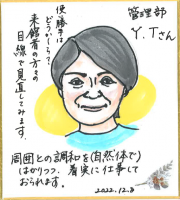 管理部
Y.Tさん
使い勝手は
どうかしら?って、
来館者の方々の
目線で見直してみます。
周囲との調和を(自然体で)
はかりつつ、着実に仕事して
おられます。
2022.12.8